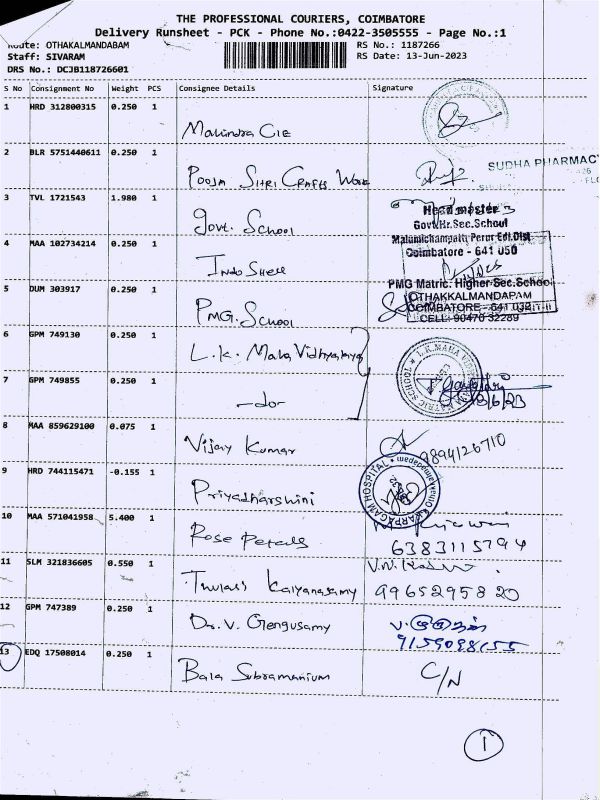 THE PROFESSIONAL COURIERS, COIMBATORE
Delivery Runsheet - PCK - Phone No.:0422-3505555 - Page No.:1
Route: OTHAKALMANDABAM RS No.: 1187266
Staff: SIVARAM RS Date: 13-Jun-2023
DRS No.: DCJB118726601
S No Consignment No Weight PCS Consignee Details Signature
1 HRD 312800315 0.250 1 Mahindra CIE
2 BLR 5751440611 0.250 1 Pooja Shri Crafts Work
SUDHA PHARMACY
3 TVL 1721543 1.980 1 Govt. School
Head master
Govt.Hr.Sec.School
Malumichampatti Perur Edl.Dist
Coimbatore - 641 050
4 MAA 102734214 0.250 1 Indo Shell
5 DUM 303917 0.250 1 PMG. School
PMG Matric. Higher Sec. School
OTHAKKALMANDAPAM
COIMBATORE - 641 032
CELL: 90470 32289
6 GPM 749130 0.250 1 L.K. Maha Vidhyalaya
7 GPM 749855 0.250 1 -do-
13/6/23
8 MAA 859629100 0.075 1 Vijay Kumar 9894126710
9 HRD 744115471 -0.155 1 Priyadharshini
KARPAGAM HOSPITAL
10 MAA 571041958 5.400 1 Rose Petals
6383115794
11 SLM 321836605 0.550 1 Thulasi Kalyanasamy 9965295820
12 GPM 747389 0.250 1 Dr. V. Gengusamy
9159098155
13 EDQ 17508014 0.250 1 Bala Subramanium C/N
1